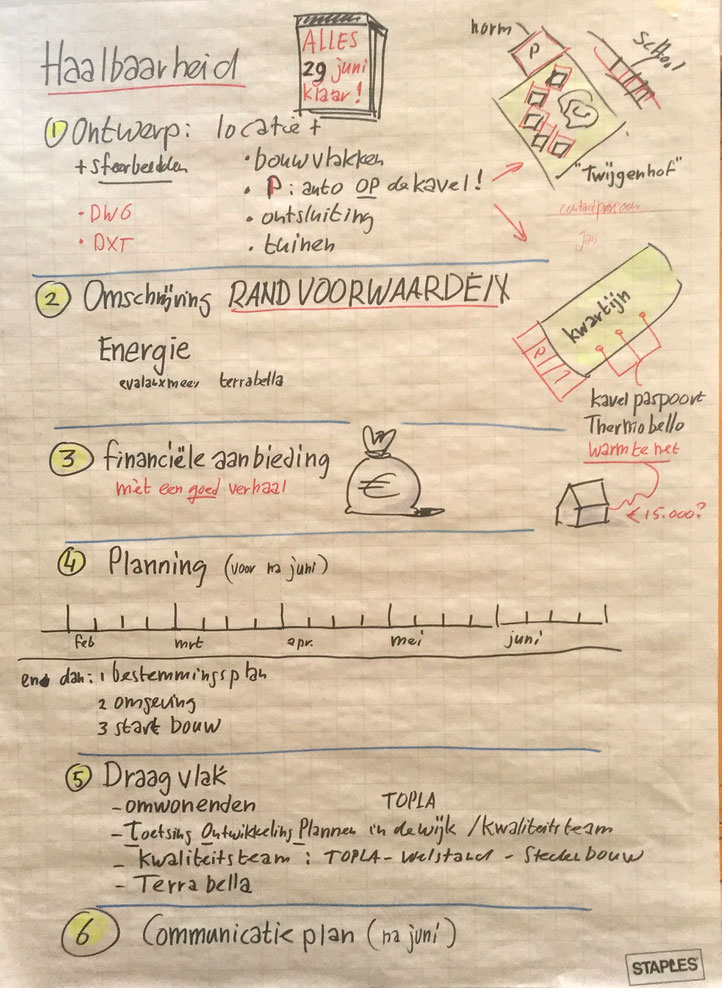 Haalbaarheid
ALLES
29 juni
klaar!
norm
P
school
"Twijgenhof"
contactpersoon
Jan
1 Ontwerp: locatie +
+ sfeerbeelden
• DWG
• DXT
• bouwvlakken
• P: auto OP de kavel!
• ontsluiting
• tuinen
2 Omschrijving RANDVOORWAARDEN
Energie
terrabella
kwartijn
P ?
kavel paspoort
Thermobello
warmtenet
€15.000?
3 financiële aanbieding
mèt een goed verhaal
€
4 Planning (voor na juni)
feb mrt apr. mei juni
en dan: 1 bestemmingsplan
2 omgeving
3 start bouw
5 Draagvlak
- omwonenden TOPLA
- Toetsing Ontwikkeling Plannen in de wijk / kwaliteitsteam
- kwaliteitsteam: TOPLA - Welstand - Stedenbouw
- Terra bella
6 Communicatie plan (na juni)
STAPLES